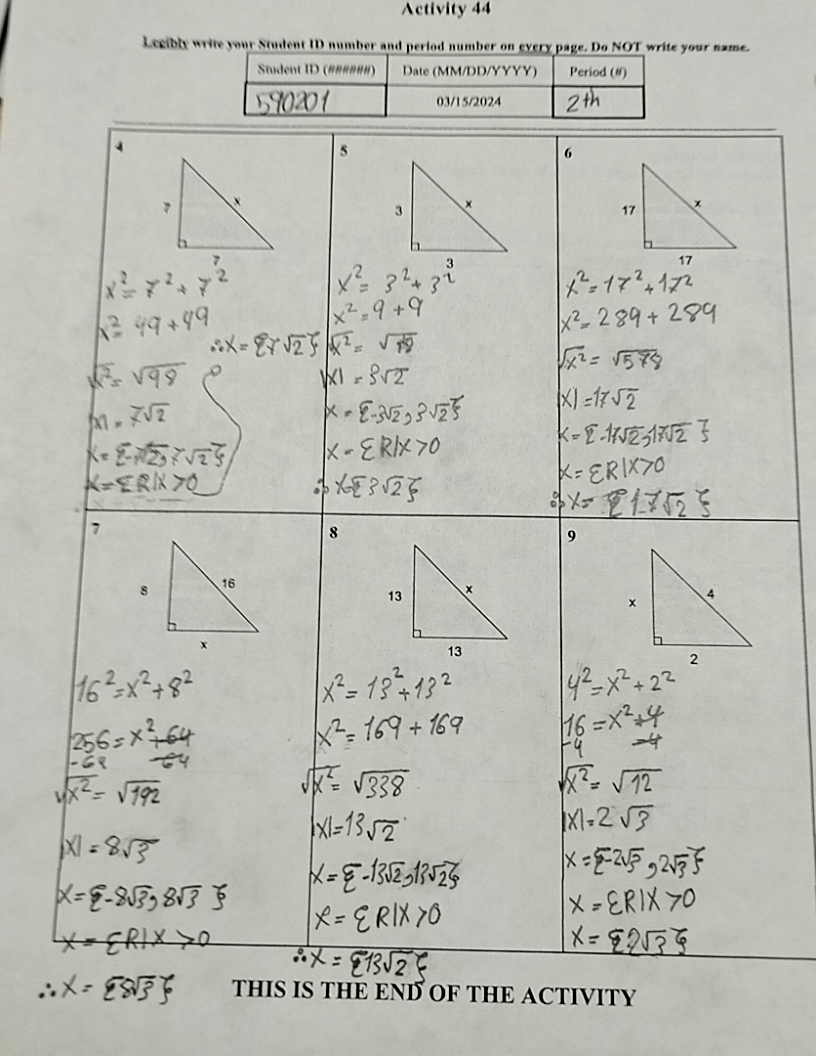 Activity 44
Legibly write your Student ID number and period number on every page. Do NOT write your name.
Student ID (######) Date (MM/DD/YYYY) Period (#)
590201 03/15/2024 2th
4
7
x
7
x² = 7² + 7²
x² = 49 + 49
∴ x = {7√2}
√x² = √98
|x| = 7√2
x = {-7√2, 7√2}
x = {R|x>0
5
3
x
3
x² = 3² + 3²
x² = 9 + 9
√x² = √18
|x| = 3√2
x = {-3√2, 3√2}
x = {R|x>0
∴ x = {3√2}
6
17
x
17
x² = 17² + 17²
x² = 289 + 289
√x² = √578
|x| = 17√2
x = {-17√2, 17√2}
x = {R|x>0
∴ x = {17√2}
7
8
16
x
16² = x² + 8²
256 = x² + 64
-64 -64
√x² = √192
|x| = 8√3
x = {-8√3, 8√3}
x = {R|x>0
∴ x = {8√3}
8
13
x
13
x² = 13² + 13²
x² = 169 + 169
√x² = √338
|x| = 13√2
x = {-13√2, 13√2}
x = {R|x>0
∴ x = {13√2}
9
x
4
2
4² = x² + 2²
16 = x² + 4
-4 -4
√x² = √12
|x| = 2√3
x = {-2√3, 2√3}
x = {R|x>0
x = {2√3}
THIS IS THE END OF THE ACTIVITY